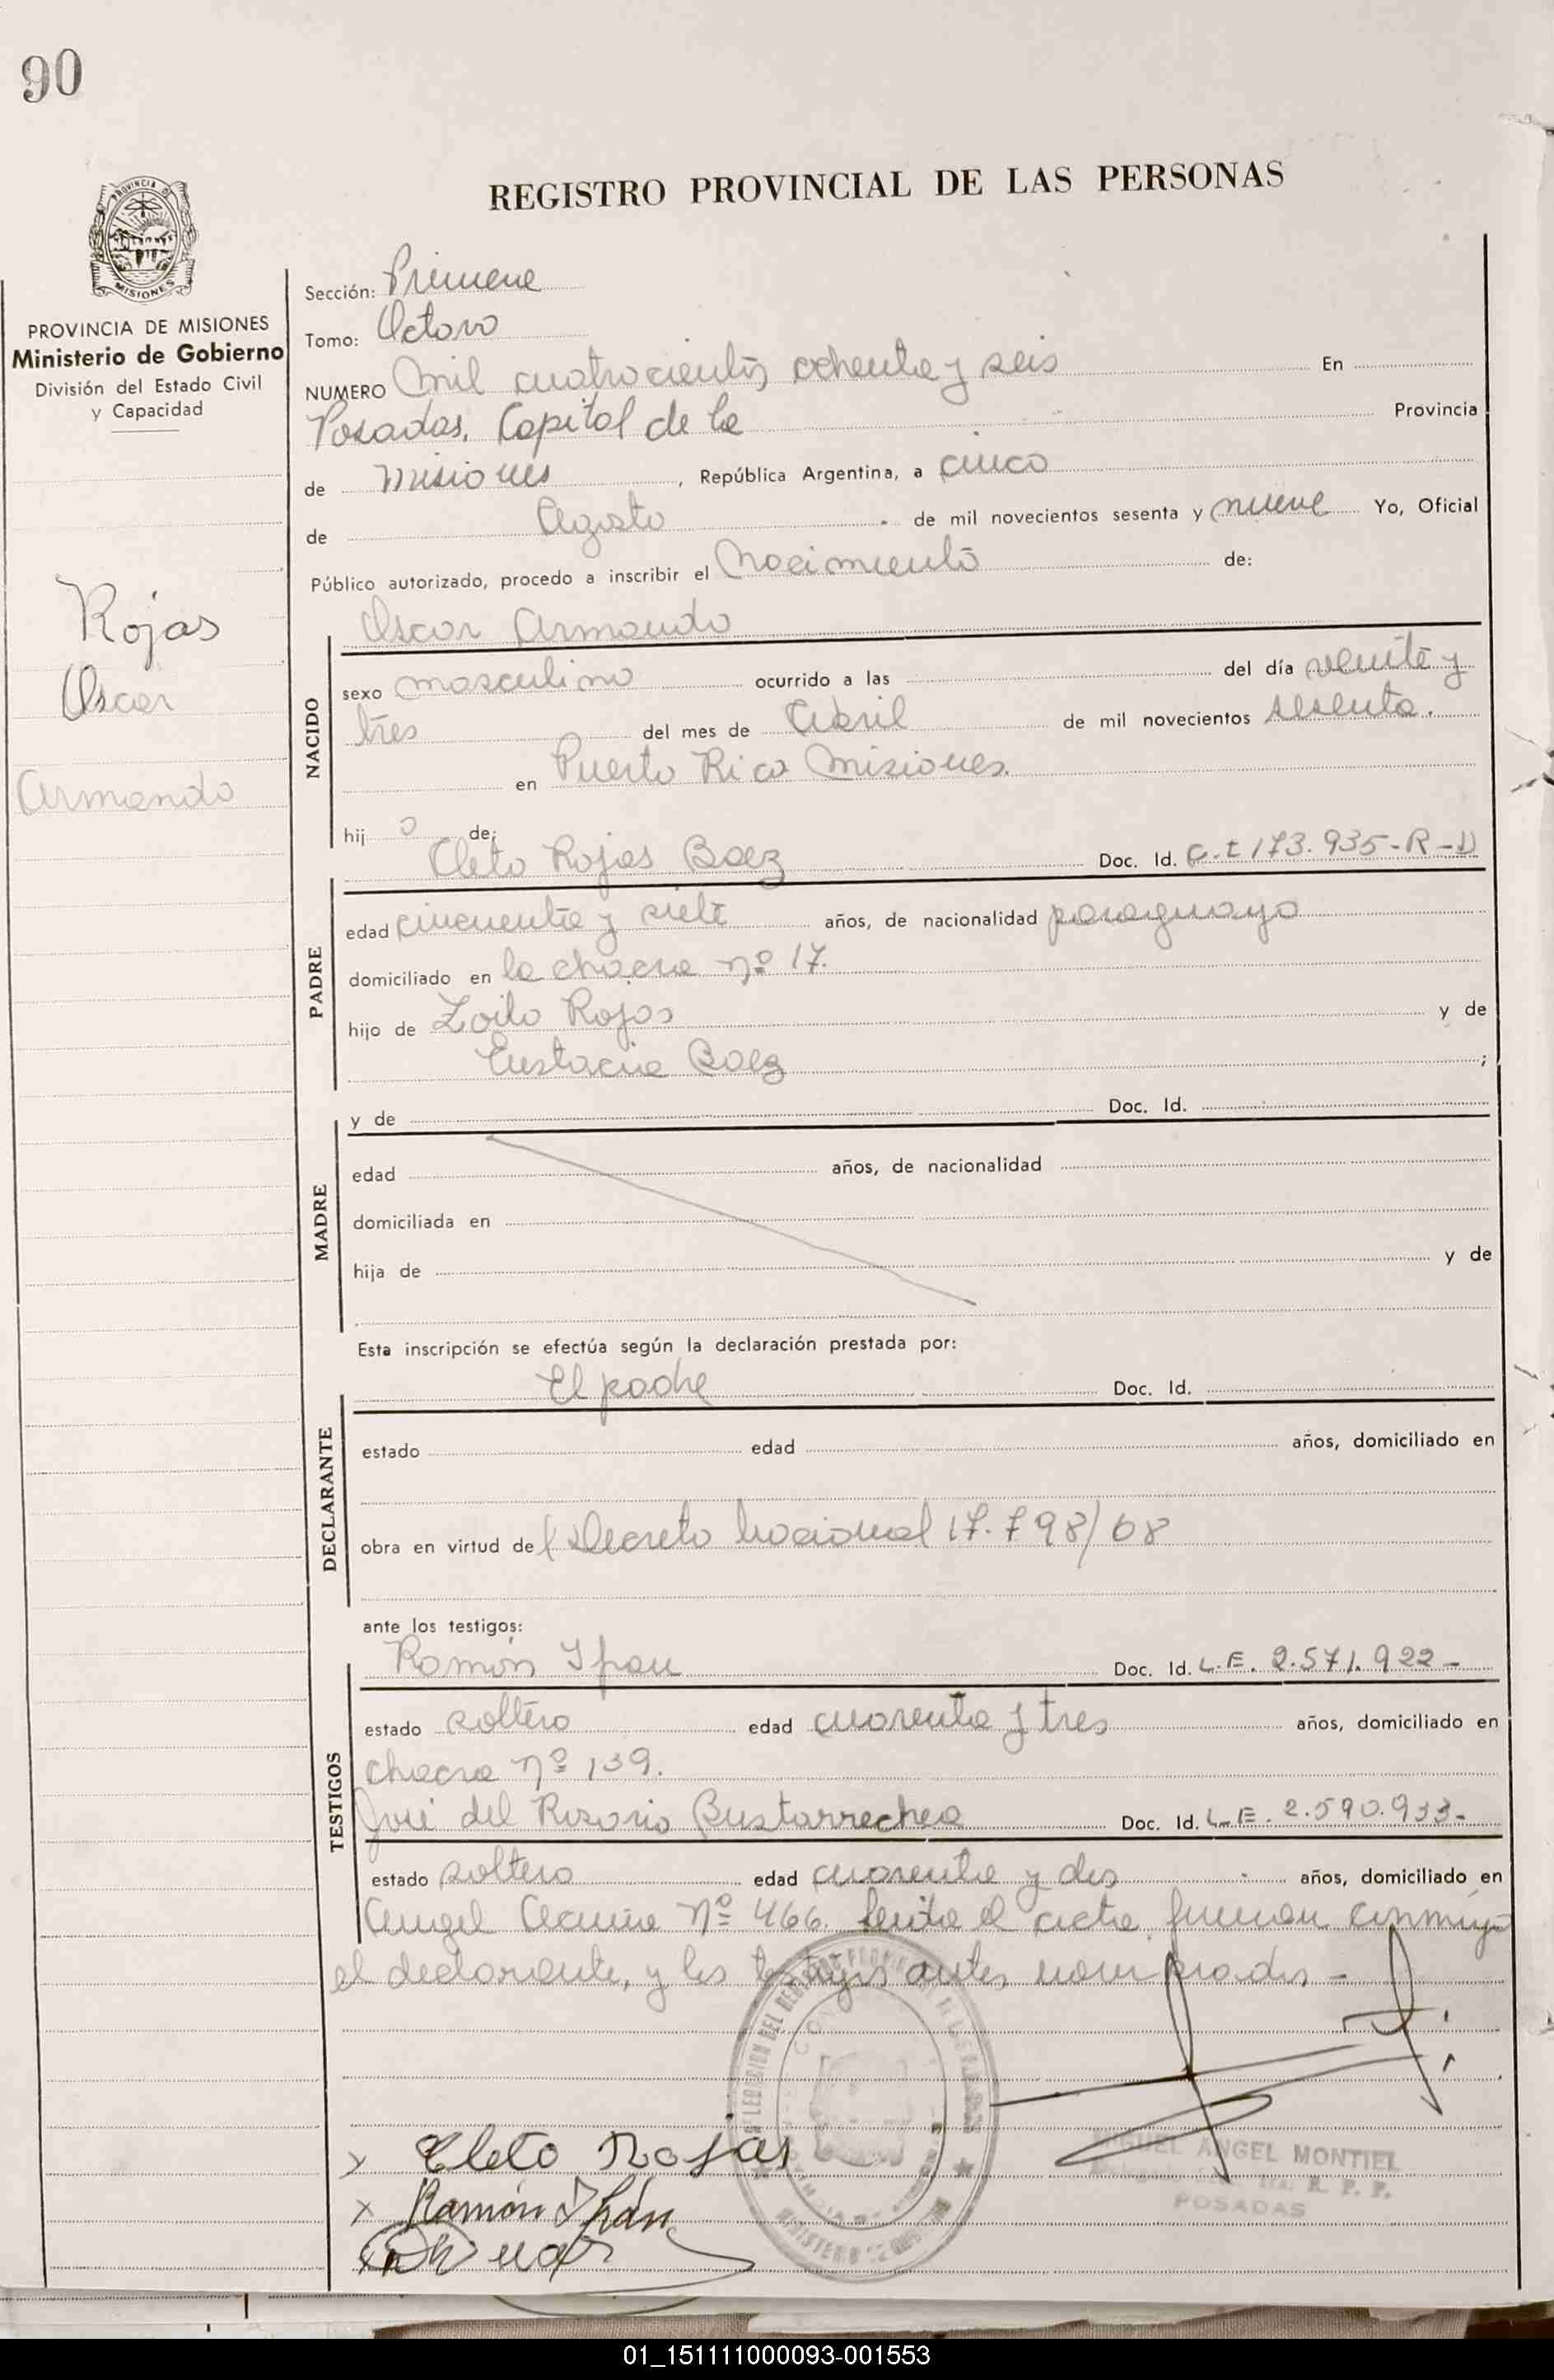 90
REGISTRO PROVINCIAL DE LAS PERSONAS
PROVINCIA DE
MISIONES
PROVINCIA DE MISIONES
Ministerio de Gobierno
División del Estado Civil
y Capacidad
Rojas
Oscar
Armando
Sección: Primera
Tomo: Octavo
NUMERO Mil cuatrocientos ochenta y seis En
Posadas, Capital de la Provincia
de Misiones, República Argentina, a cinco
de Agosto de mil novecientos sesenta y nueve Yo, Oficial
Público autorizado, procedo a inscribir el Nacimiento de:
Oscar Armando
NACIDO
sexo masculino ocurrido a las del día veinte y
tres del mes de Abril de mil novecientos sesenta.
en Puerto Rico Misiones.
hij o de:
Cleto Rojas Baez Doc. Id. C.I 173.935-R-D
PADRE
edad cincuenta y siete años, de nacionalidad paraguayo
domiciliado en la chacra nº 17.
hijo de Zoilo Rojas y de
Eustacia Baez ;
MADRE
y de Doc. Id.
edad años, de nacionalidad
domiciliada en
hija de y de
Esta inscripción se efectúa según la declaración prestada por:
El padre Doc. Id.
DECLARANTE
estado edad años, domiciliado en
obra en virtud del Decreto Nacional 17.798/68
ante los testigos:
Ramón Ifran Doc. Id. L.E. 2.571.922-
TESTIGOS
estado soltero edad cuarenta y tres años, domiciliado en
chacra nº 139.
José del Rosario Bustarrechea Doc. Id. L.E. 2.590.933-
estado soltero edad cuarenta y dos años, domiciliado en
Angel Acuña Nº 466. Leida el acta, firman conmigo
el declarante, y los testigos antes nombrados -
Cleto Rojas
Ramón Ifrán
MIGUEL ANGEL MONTIEL
R. P. P.
POSADAS
01_151111000093-001553